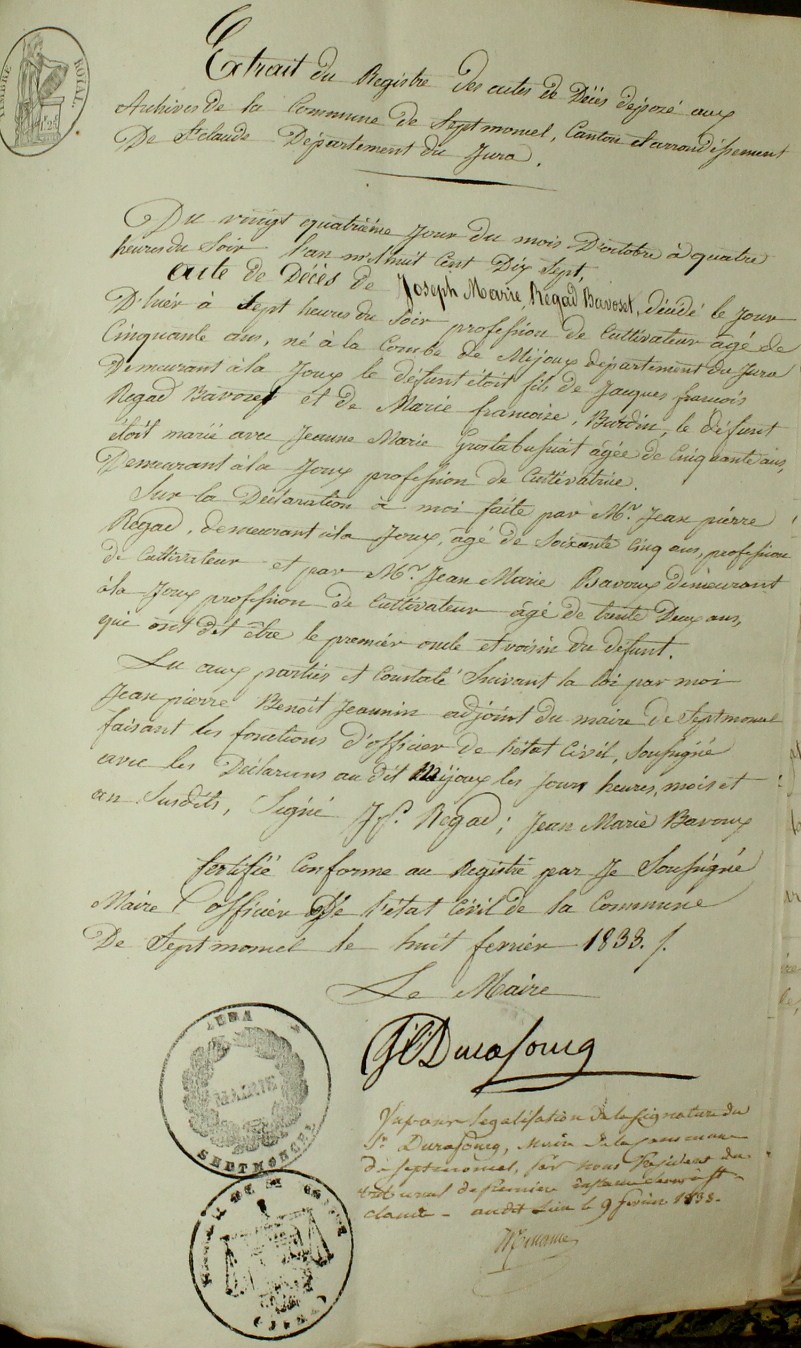 TIMBRE ROYAL
Extrait du Registre des actes de Décès déposé aux
Archives de la Commune de Septmoncel, Canton et arrondissement
De St Claude Département du Jura.
Du vingt quatrième Jour du mois D'octobre à quatre
heures du Soir l'an mil huit Cent Dix Sept,
acte de Décès de Joseph Marie Regad Bavoset, décédé le Jour
D'hiér à Sept heures du Soir profession de Cultivateur agé de
Cinquante ans, né à la Combe de Mijoux département du Jura
Demeurant à la Joux le défunt étoit fils de Jacques francois
Regad Bavozet et de Marie francoise, Burdin, le défunt
étoit marié avec Jeanne Marie Grostabussiat âgée de Cinquante ans,
Demeurant à la Joux profession de Cultivatrice.
Sur la Déclaration à moi faite par Mr. Jean pierre
Regad, demeurant à la Joux, âgé de Soixante Cinq ans, profession
de Cultivateur et par Mr. Jean Marie Bavoux demeurant
à la Joux profession de Cultivateur âgé de trente Deux ans,
qui ont dit être le premiér oncle et voisin du défunt.
Lu aux parties et Constaté Suivant la loi par moi
Jean pierre Benoit Jeannin adjoint du maire de Septmoncel
faisant les fonctions d'officier de l'état Civil, Soussigné
avec les Déclarans au dit Mijoux les Jours heures, mois et
an Susdits, Signé Jp. Regad; Jean Marie Bavoux
Certifié Conforme au Registre par Je Soussigné
Maire officiér De l'état Civil de la Commune
De Septmoncel le huit fevriér 1833.
Le Maire
JURA
MAIRIE
SEPTMONCEL
Vu pour legalisation de la signature du
Sr. Durafourg, Maire de la commune
de septmoncel, par nous President du
tribunal de premiere instance de st
claude - audit lieu le 9 fevrier 1833.